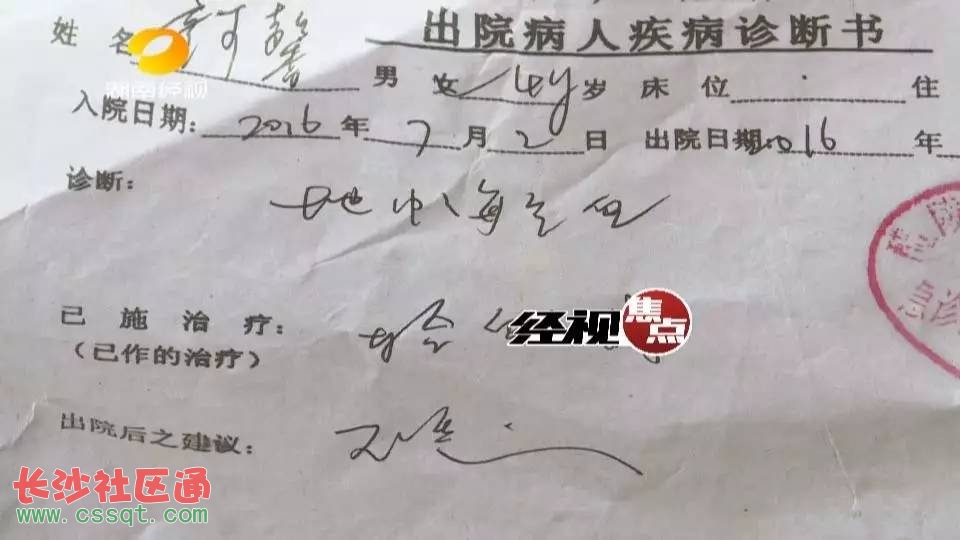 出院病人疾病诊断书
姓名 可馨 男 女 4y 岁 床位 住
湖南经视
入院日期: 2016 年 7 月 2 日 出院日期: 2016 年
诊断:
地中海贫血
已施治疗:
(已作的治疗)
经视焦点
出院后之建议:
长沙社区通
www.cssqt.com